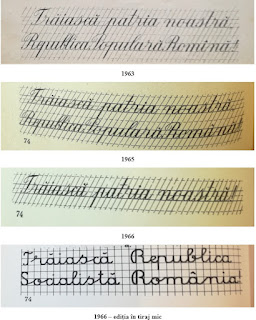 Trăiască patria noastră,
Republica Populară Romînă!
1963
Trăiască patria noastră,
Republica Populară Română!
74
1965
Trăiască patria noastră!
74
1966
Trăiască Republica
Socialistă România!
74
1966 – ediția în tiraj mic